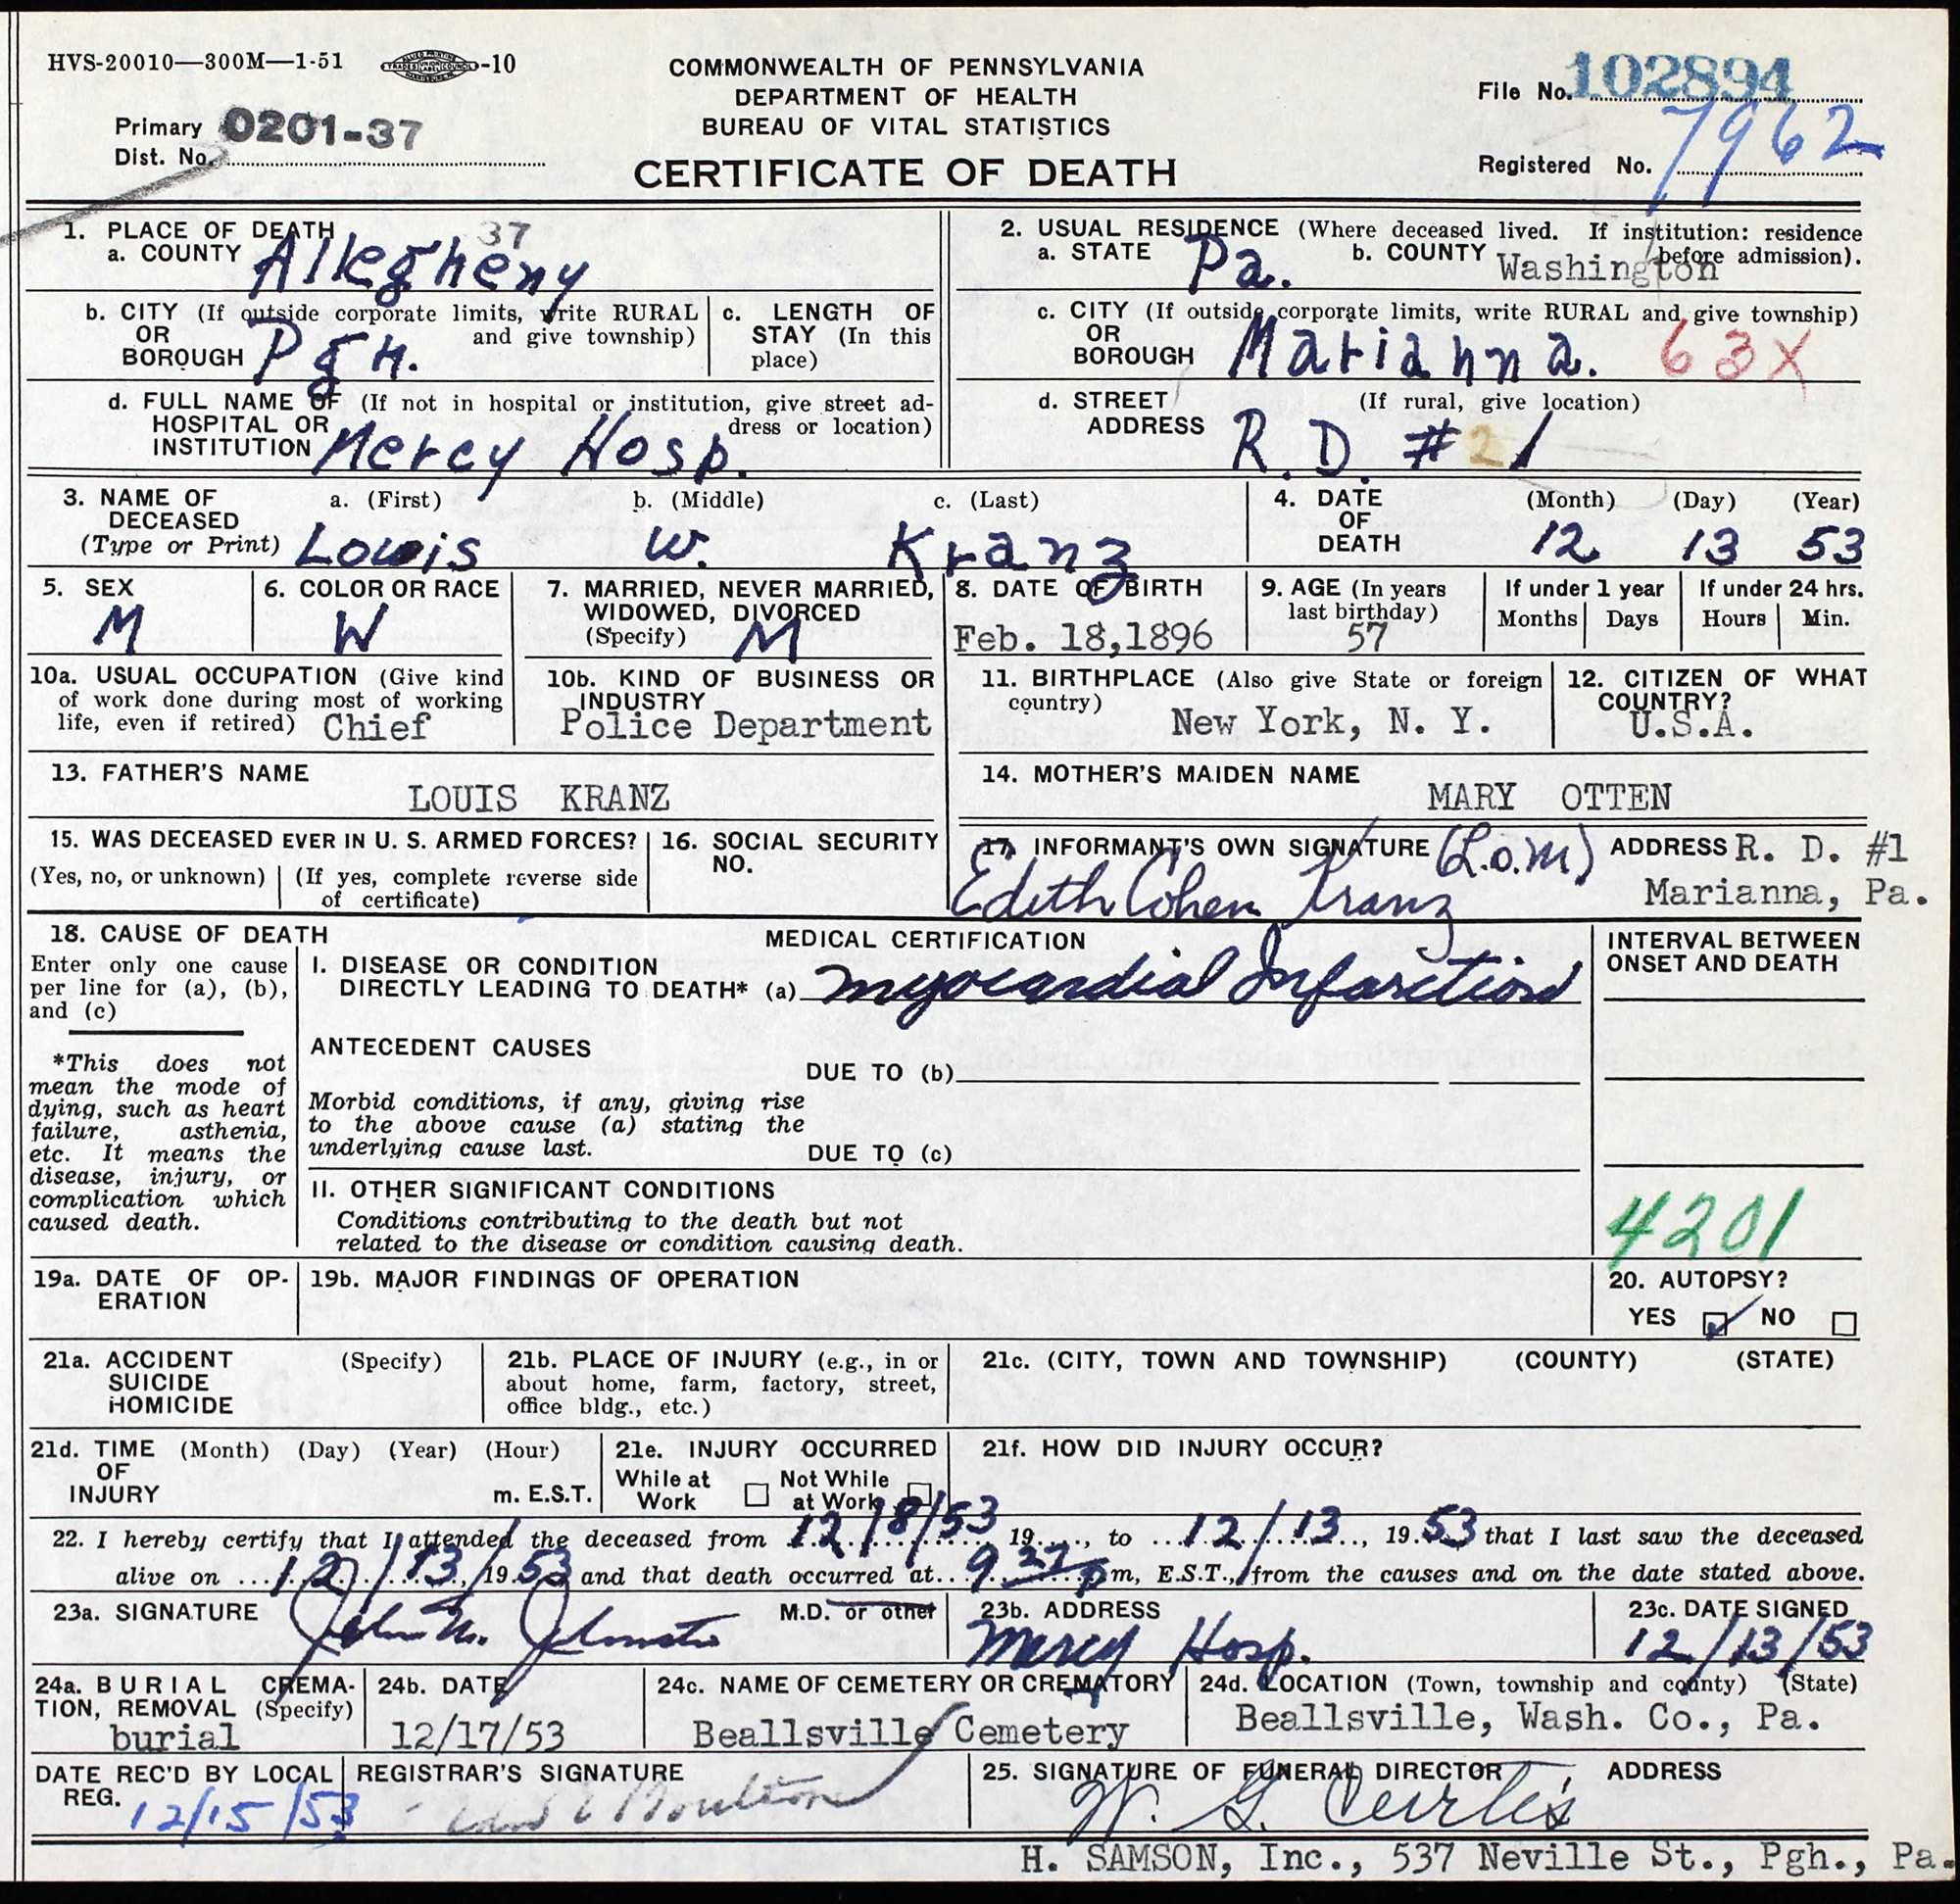 HVS-20010—300M—1-51 -10
COMMONWEALTH OF PENNSYLVANIA
DEPARTMENT OF HEALTH
BUREAU OF VITAL STATISTICS
CERTIFICATE OF DEATH
File No. 102894
Primary Dist. No. 0201-37
Registered No. 7962
1. PLACE OF DEATH 37
a. COUNTY Allegheny
b. CITY (If outside corporate limits, write RURAL
OR and give township)
BOROUGH Pgh.
c. LENGTH OF
STAY (In this
place)
d. FULL NAME OF (If not in hospital or institution, give street ad-
HOSPITAL OR dress or location)
INSTITUTION Mercy Hosp.
2. USUAL RESIDENCE (Where deceased lived. If institution: residence
before admission).
a. STATE Pa. b. COUNTY Washington
c. CITY (If outside corporate limits, write RURAL and give township)
OR
BOROUGH Marianna. 63X
d. STREET (If rural, give location)
ADDRESS R.D. # 2 1
3. NAME OF a. (First) b. (Middle) c. (Last)
DECEASED
(Type or Print) Louis W. Kranz
4. DATE (Month) (Day) (Year)
OF
DEATH 12 13 53
5. SEX
M
6. COLOR OR RACE
W
7. MARRIED, NEVER MARRIED,
WIDOWED, DIVORCED
(Specify) M
8. DATE OF BIRTH
Feb. 18,1896
9. AGE (In years
last birthday)
57
If under 1 year
Months Days
If under 24 hrs.
Hours Min.
10a. USUAL OCCUPATION (Give kind
of work done during most of working
life, even if retired) Chief
10b. KIND OF BUSINESS OR
INDUSTRY
Police Department
11. BIRTHPLACE (Also give State or foreign
country)
New York, N. Y.
12. CITIZEN OF WHAT
COUNTRY?
U.S.A.
13. FATHER'S NAME
LOUIS KRANZ
14. MOTHER'S MAIDEN NAME
MARY OTTEN
15. WAS DECEASED EVER IN U. S. ARMED FORCES?
(Yes, no, or unknown) (If yes, complete reverse side
of certificate)
16. SOCIAL SECURITY
NO.
17. INFORMANT'S OWN SIGNATURE (L.o.M)
Edith Cohen Kranz
ADDRESS R. D. #1
Marianna, Pa.
18. CAUSE OF DEATH
Enter only one cause
per line for (a), (b),
and (c)
*This does not
mean the mode of
dying, such as heart
failure, asthenia,
etc. It means the
disease, injury, or
complication which
caused death.
MEDICAL CERTIFICATION
I. DISEASE OR CONDITION
DIRECTLY LEADING TO DEATH* (a) Myocardial Infarction
ANTECEDENT CAUSES
DUE TO (b)
Morbid conditions, if any, giving rise
to the above cause (a) stating the
underlying cause last.
DUE TO (c)
II. OTHER SIGNIFICANT CONDITIONS
Conditions contributing to the death but not
related to the disease or condition causing death.
INTERVAL BETWEEN
ONSET AND DEATH
4201
19a. DATE OF OP-
ERATION
19b. MAJOR FINDINGS OF OPERATION
20. AUTOPSY?
YES NO
21a. ACCIDENT (Specify)
SUICIDE
HOMICIDE
21b. PLACE OF INJURY (e.g., in or
about home, farm, factory, street,
office bldg., etc.)
21c. (CITY, TOWN AND TOWNSHIP) (COUNTY) (STATE)
21d. TIME (Month) (Day) (Year) (Hour)
OF
INJURY m. E.S.T.
21e. INJURY OCCURRED
While at Work Not While at Work
21f. HOW DID INJURY OCCUR?
22. I hereby certify that I attended the deceased from 12/8/53 19...., to 12/13, 19.53 that I last saw the deceased
alive on 12/13/, 19.53 and that death occurred at 9 37 pm, E.S.T., from the causes and on the date stated above.
23a. SIGNATURE M.D. or other
John M. Johnston
23b. ADDRESS
Mercy Hosp.
23c. DATE SIGNED
12/13/53
24a. BURIAL CREMA-
TION, REMOVAL (Specify)
burial
24b. DATE
12/17/53
24c. NAME OF CEMETERY OR CREMATORY
Beallsville Cemetery
24d. LOCATION (Town, township and county) (State)
Beallsville, Wash. Co., Pa.
DATE REC'D BY LOCAL
REG. 12/15/53
REGISTRAR'S SIGNATURE
25. SIGNATURE OF FUNERAL DIRECTOR ADDRESS
W. G. Curtis
H. SAMSON, Inc., 537 Neville St., Pgh., Pa.